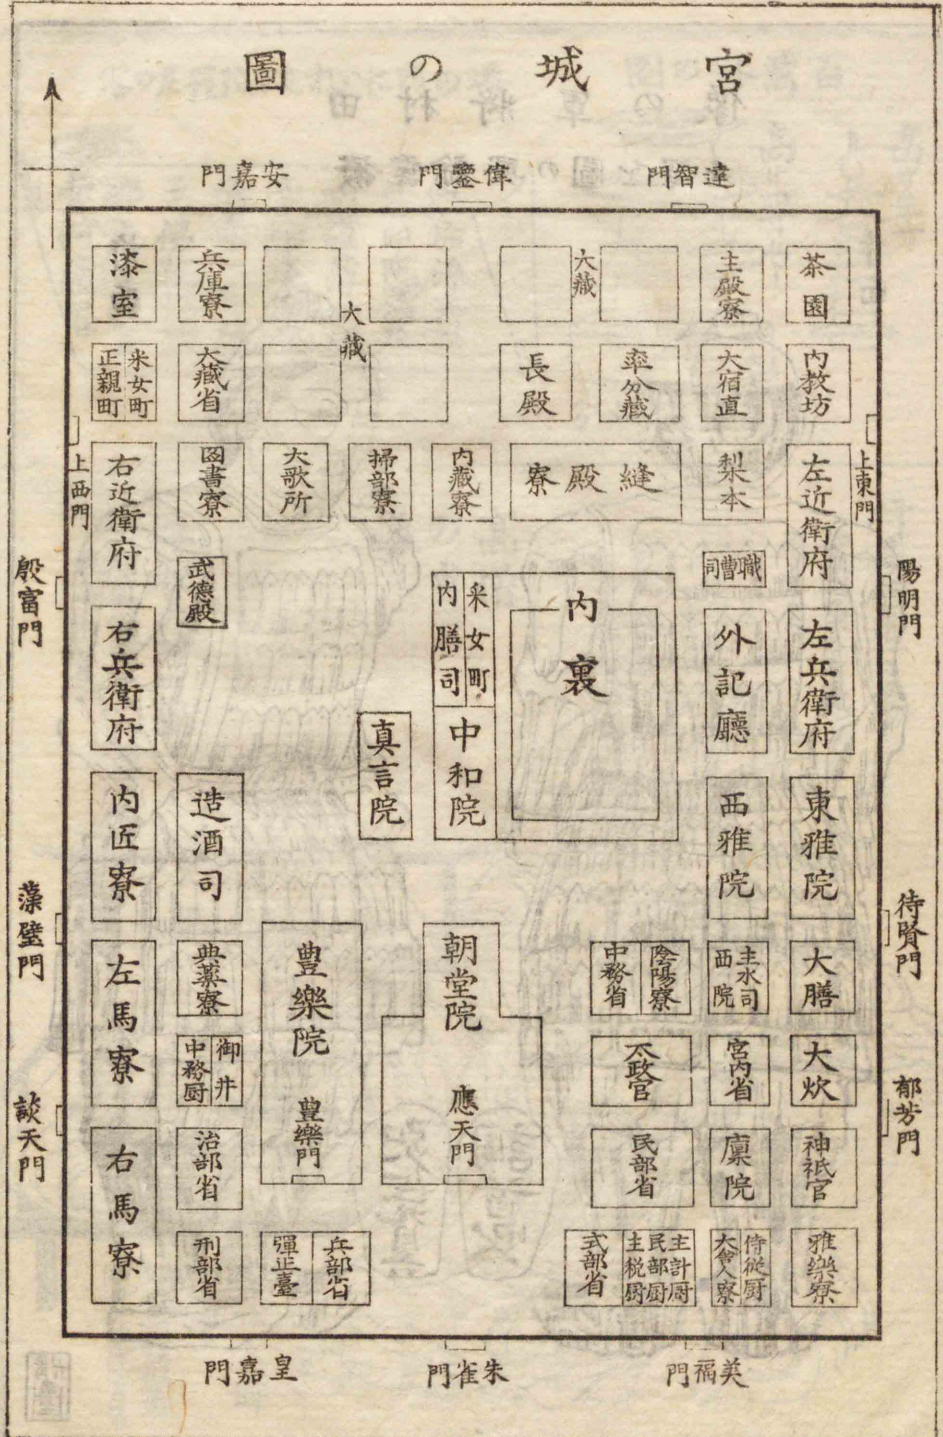 宮城の圖
達智門
偉鑒門
安嘉門
茶園
主殿寮
大藏
大藏
兵庫寮
漆室
内教坊
大宿直
率分藏
長殿
大藏省
采女町
正親町
上東門
左近衛府
梨本
縫殿寮
内藏寮
掃部寮
大歌所
図書寮
右近衛府
上西門
陽明門
職曹司
武德殿
殷富門
左兵衛府
外記廳
内裏
采女町
内膳司
中和院
真言院
右兵衛府
東雅院
西雅院
造酒司
内匠寮
待賢門
大膳
主水司
西院
陰陽寮
中務省
朝堂院
應天門
豊樂院
豊樂門
典薬寮
左馬寮
藻壁門
大炊
宮内省
太政官
御井
中務厨
郁芳門
神祇官
廩院
民部省
治部省
右馬寮
談天門
雅樂寮
侍從厨
大舎人寮
主計厨
民部厨
主税厨
式部省
兵部省
彈正臺
刑部省
美福門
朱雀門
皇嘉門